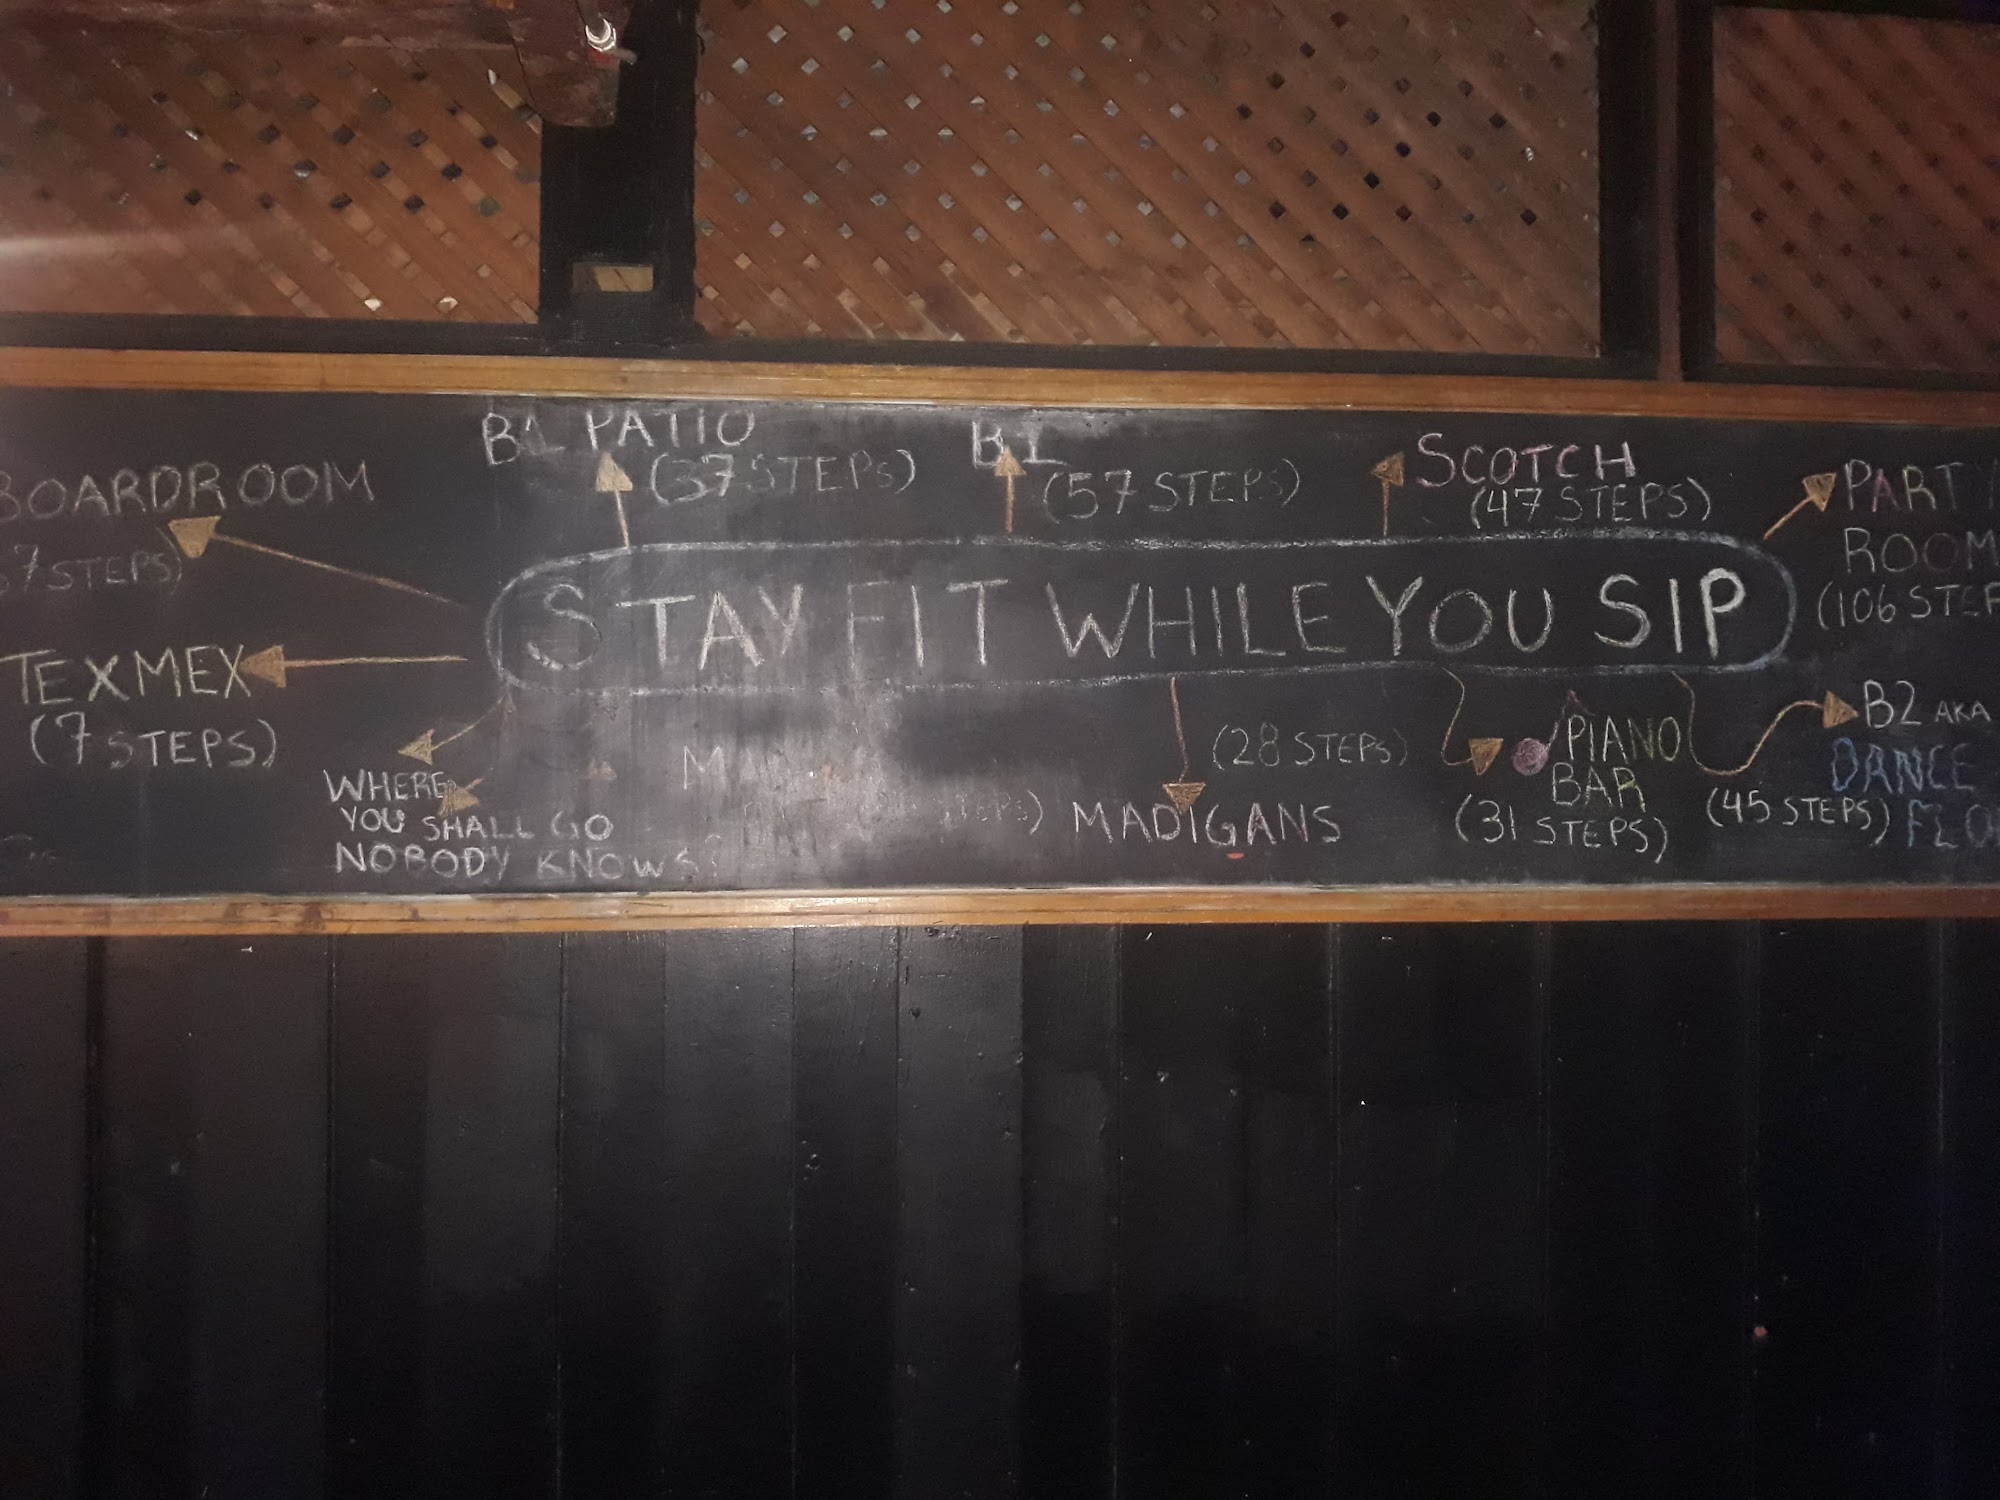 BOARDROOM
7 STEPS)
B1 PATIO
(37 STEPS)
B1
(57 STEPS)
SCOTCH
(47 STEPS)
PARTY
ROOM
(106 STEP
STAY FIT WHILE YOU SIP
TEXMEX
(7 STEPS)
WHERE
YOU SHALL GO
NOBODY KNOWS?
(28 STEPS)
MADIGANS
PIANO
BAR
(31 STEPS)
B2 AKA
DANCE
FLO
(45 STEPS)